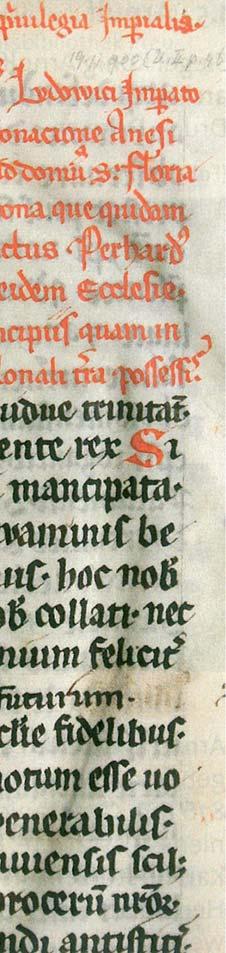 p͛uilegia Imp͛ialia.
Ludowici Imp͛ato
onacione Anesi
ad domū S. Floria
ona que quidam
ctus Perhard͛
eidem Ecclesie.
ncipiis quam in
lonali t͛ra possessi͛.
iudue trinitat͛.
ente rex Si
mancipata.
uaminis be
uis. hoc nob͛
ob͛ collati. nec
nuum felicit͛
futurum.
cl̄ie fidelibus.
notum esse uo
uenerabilis.
uuensis scil;
procerū nr̄oꝝ
ndi antistiti.